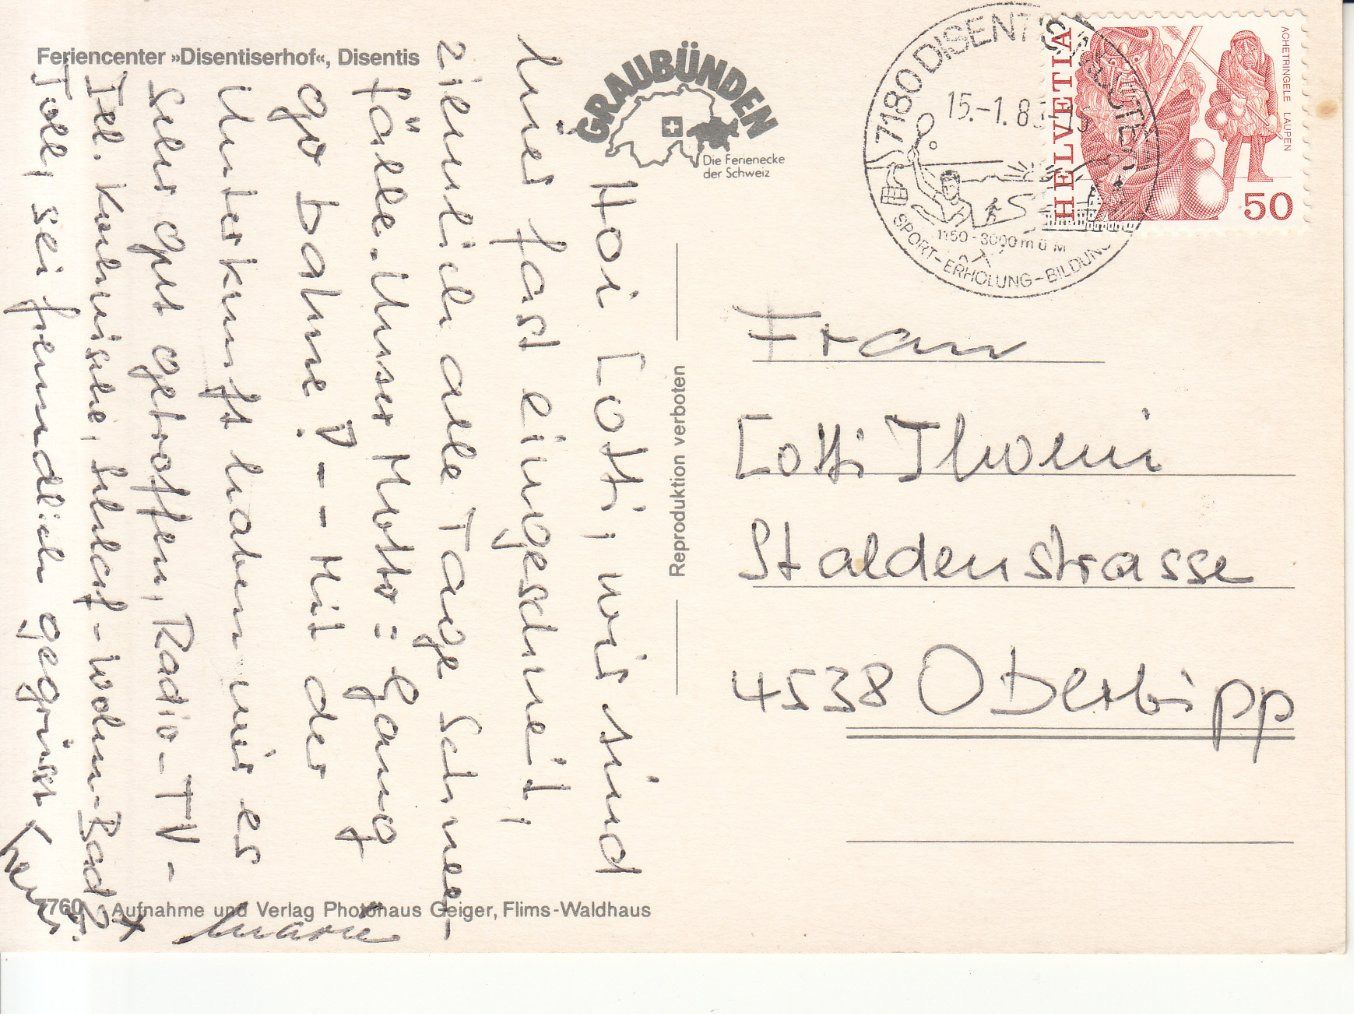 Feriencenter »Disentiserhof«, Disentis
GRAUBÜNDEN
Die Ferienecke
der Schweiz
7180 DISENTIS/MUSTER
15.-1.83
1150-3000 m ü M
SPORT-ERHOLUNG-BILDUNG
HELVETIA
ACHETRINGELE LAUPEN
50
Hoi Lotti, wir sind
hier fast eingeschneit,
ziemlich alle Tage Schnee-
fälle. Unser Motto = Gang
go bahne! -- Mit der
Unterkunft haben wir es
sehr gut getroffen, Radio-TV-
Tel. Kochnische, Schlaf-Wohn-Bad Z.
Toll, sei freundlich gegrüsst,
Marie
Reproduktion verboten
Frau
Lotti
Staldenstrasse
4538 Oberbipp
7760 Aufnahme und Verlag Photohaus Geiger, Flims-Waldhaus